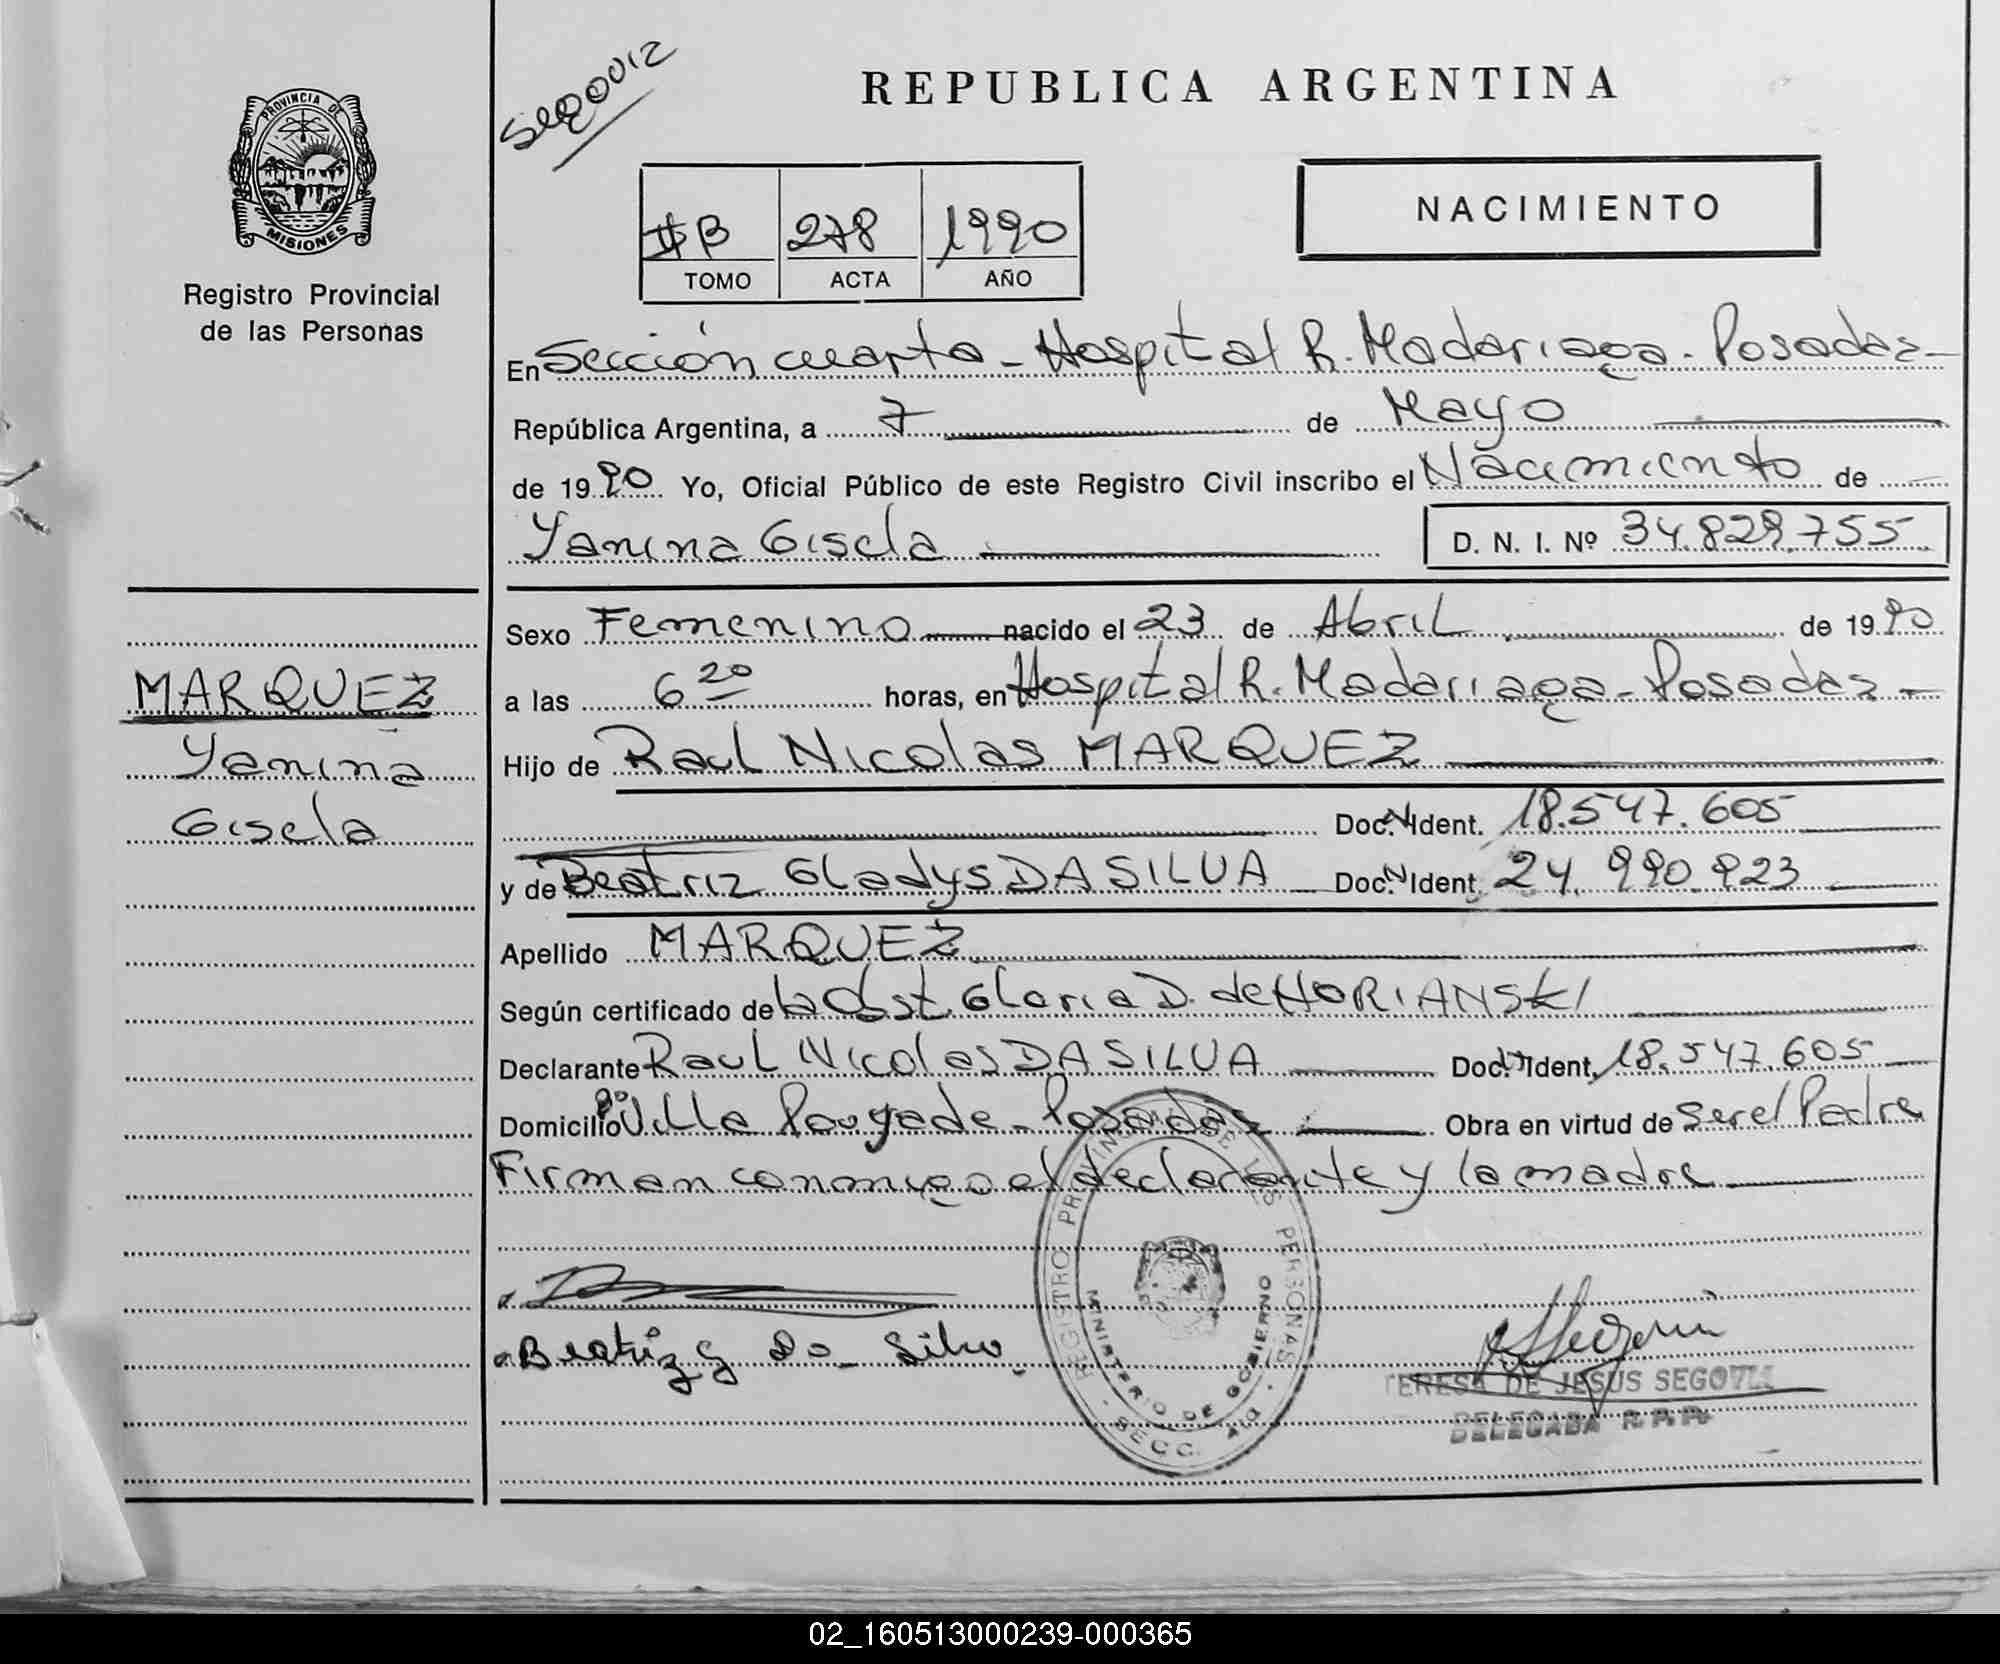 Segovia
REPUBLICA ARGENTINA
PROVINCIA DE
MISIONES
Registro Provincial
de las Personas
II B 278 1990
TOMO ACTA AÑO
NACIMIENTO
En Sección cuarta - Hospital R. Madariaga - Posadas -
República Argentina, a 7 de Mayo
de 1990 Yo, Oficial Público de este Registro Civil inscribo el Nacimiento de
Yanina Gisela D. N. I. Nº 34.829.755
Sexo Femenino nacido el 23 de Abril de 1990
MARQUEZ
Yanina
Gisela
a las 6 20 horas, en Hospital R. Madariaga - Posadas -
Hijo de Raul Nicolas MARQUEZ
Doc. N Ident. 18.547.605
y de Beatriz Gladys DA SILVA Doc. N Ident. 24.990.923
Apellido MARQUEZ
Según certificado de la Obst. Gloria D. de HORIANSKI
Declarante Raul Nicolas DA SILVA Doc. N Ident. 18.547.605
Domicilio Bº Villa Poujade - Posadas Obra en virtud de Ser el Padre
Firman conmigo el declarante y la madre
Beatriz G Da Silva
REGISTRO PROVINCIAL DE LAS PERSONAS
MINISTERIO DE GOBIERNO
SECC. 4ta
TERESA DE JESUS SEGOVIA
DELEGADA R.P.P.
02_160513000239-000365